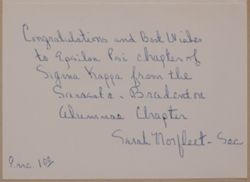 Congratulations and Best Wishes
to Epsilon Psi chapter of
Sigma Kappa from the
Sarasota - Bradenton
Alumnae Chapter
Sarah Norfleet - Sec